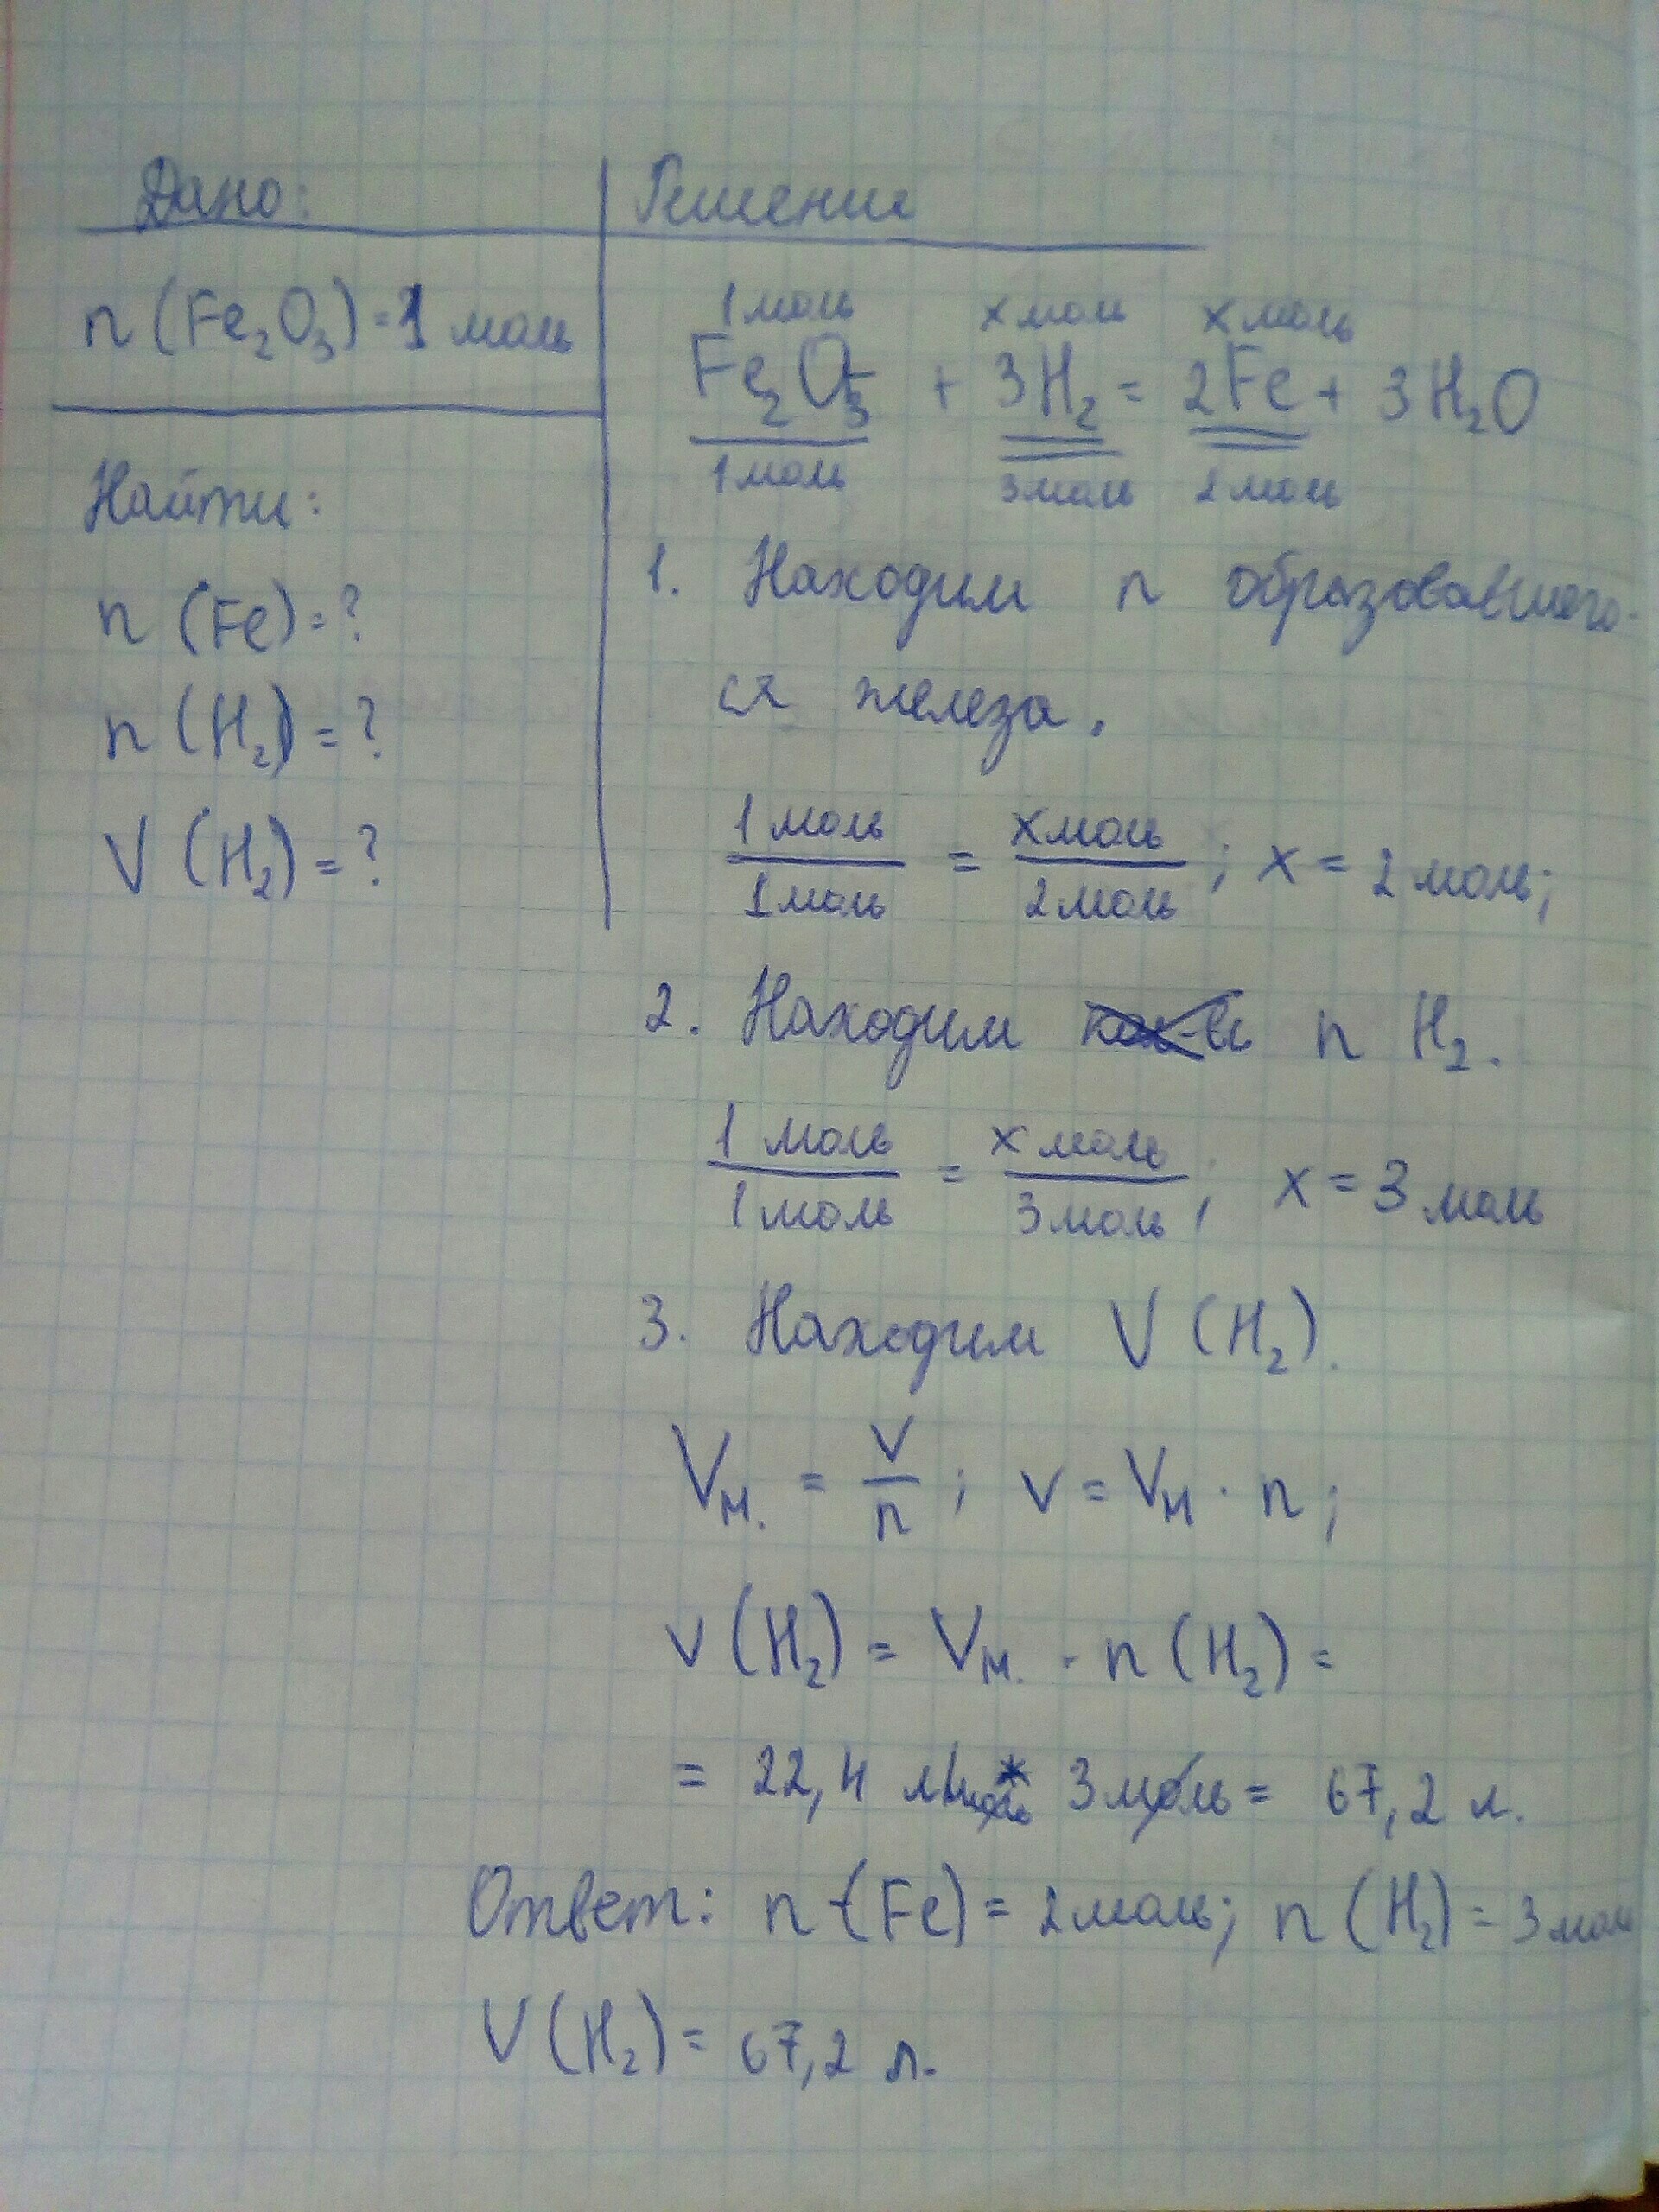 Дано:
n (Fe₂O₃) = 1 моль
Найти:
n (Fe) = ?
n (H₂) = ?
V (H₂) = ?
Решение
1 моль x моль x моль
Fe₂O₃ + 3H₂ = 2Fe + 3H₂O
1 моль 3 моль 2 моль
1. Находим n образовавшего-
ся железа.
1 моль / 1 моль = x моль / 2 моль ; x = 2 моль;
2. Находим n H₂.
1 моль / 1 моль = x моль / 3 моль ; x = 3 моль
3. Находим V (H₂).
Vм. = V/n ; V = Vм · n ;
V (H₂) = Vм. · n (H₂) =
= 22,4 л/моль * 3 моль = 67,2 л.
Ответ: n (Fe) = 2 моль; n (H₂) = 3 моль
V (H₂) = 67,2 л.